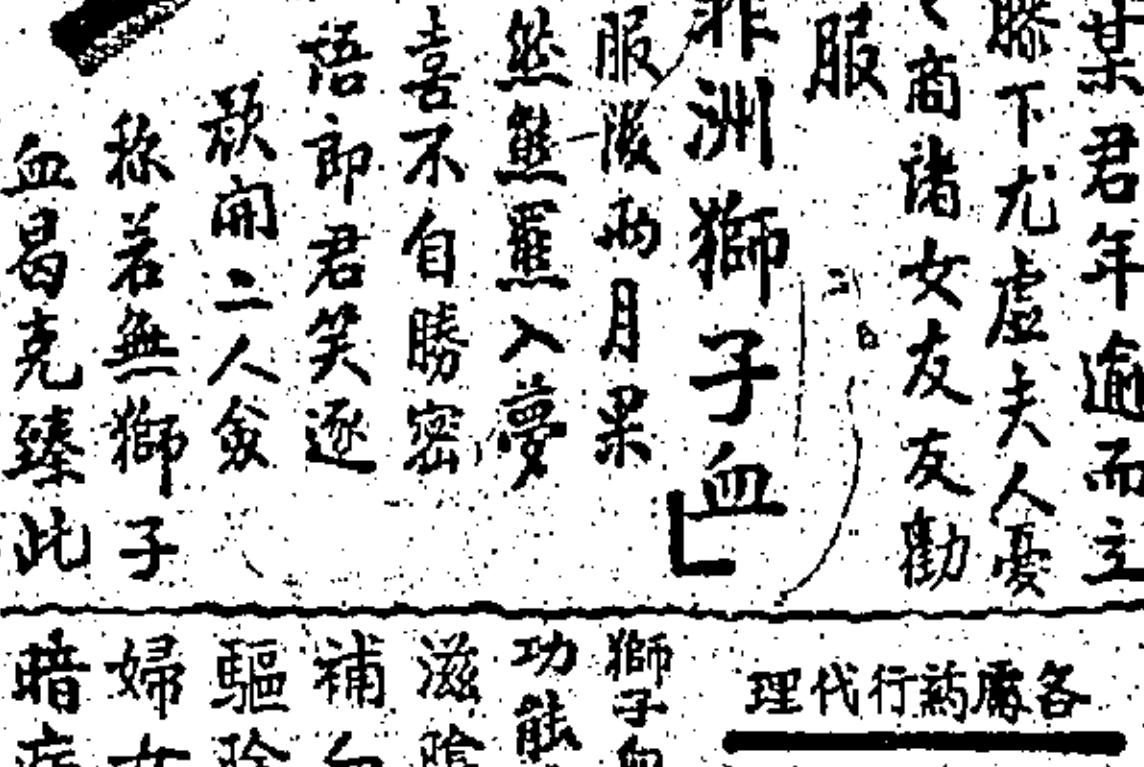 某君年逾而立
膝下尤虛夫人憂
商諸女友友勸
服
非洲獅子血
服後兩月果
熊熊羆入夢
喜不自勝密
語郎君笑逐
顏開二人僉
稱若無獅子
血曷克臻此
各處葯行代理
獅子血
功能
滋陰
補血
驅除
婦女
暗病